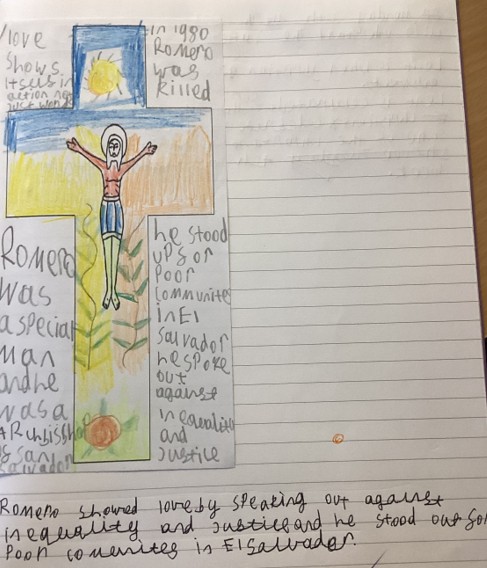 love
shows
itself in
action not
just words
in 1980
Romero
was
killed
Romero
was
a special
man
and he
was a
ARchbishop
of San
Salvador
he stood
up for
poor
communites
in El
Salvador
he spoke
out
against
inequality
and
Justice
Romero showed love by speaking out against
inequality and Justice and he stood out for
Poor comenites in El Salvador.